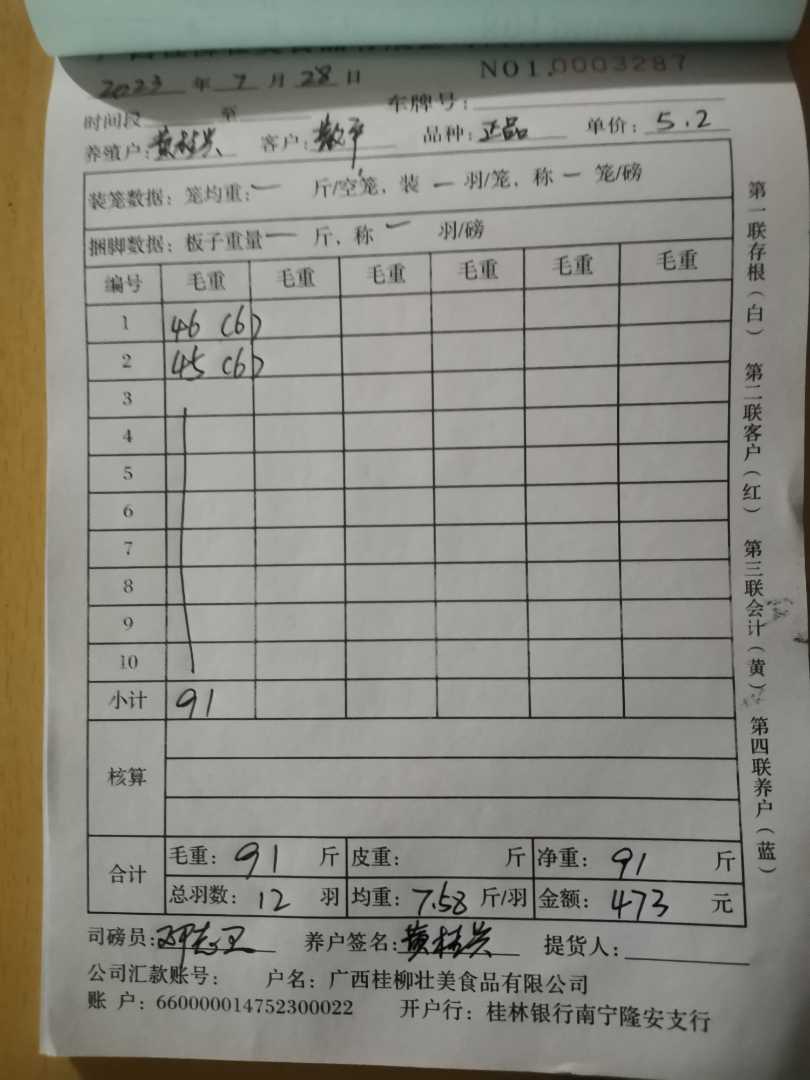 2023 年 7 月 28 日 NO1.0003287
时间段 至 车牌号:
养殖户: 黄桂兴 客户: 散户 品种: 正品 单价: 5.2
装笼数据: 笼均重: 一 斤/空笼, 装 一 羽/笼, 称 一 笼/磅
捆脚数据: 板子重量 一 斤, 称 一 羽/磅
编号 毛重 毛重 毛重 毛重 毛重 毛重
1 46 (6)
2 45 (6)
3
4
5
6
7
8
9
10
小计 91
核算
合计 毛重: 91 斤 皮重: 斤 净重: 91 斤
总羽数: 12 羽 均重: 7.58 斤/羽 金额: 473 元
司磅员: 养户签名: 黄桂兴 提货人:
公司汇款账号: 户名: 广西桂柳壮美食品有限公司
账 户: 660000014752300022 开户行: 桂林银行南宁隆安支行
第一联存根(白) 第二联客户(红) 第三联会计(黄) 第四联养户(蓝)